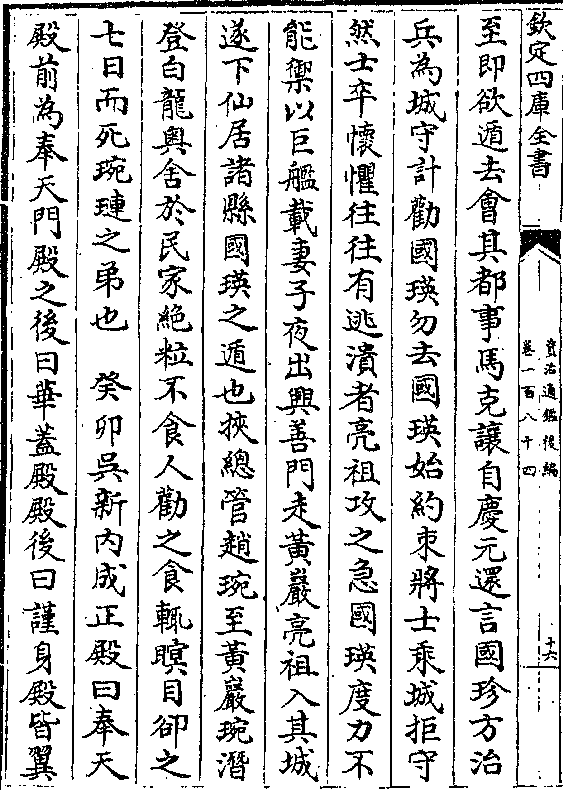 欽定四庫全書
資治通鑑後編
卷一百八十四
十六
至即欲遁去會其都事馬克讓自慶元還言國珍方治
兵為城守計勸國瑛勿去國瑛始約束將士乘城拒守
然士卒懷懼往往有逃潰者亮祖攻之急國瑛度力不
能禦以巨艦載妻子夜出興善門走黃巖亮祖入其城
遂下仙居諸縣國瑛之遁也挾總管趙琬至黃巖琬潛
登白龍奥舍於民家絶粒不食人勸之食輒瞑目卻之
七日而死琬璉之弟也　癸卯吳新內成正殿曰奉天
殿前為奉天門殿之後曰華蓋殿殿後曰謹身殿皆翼